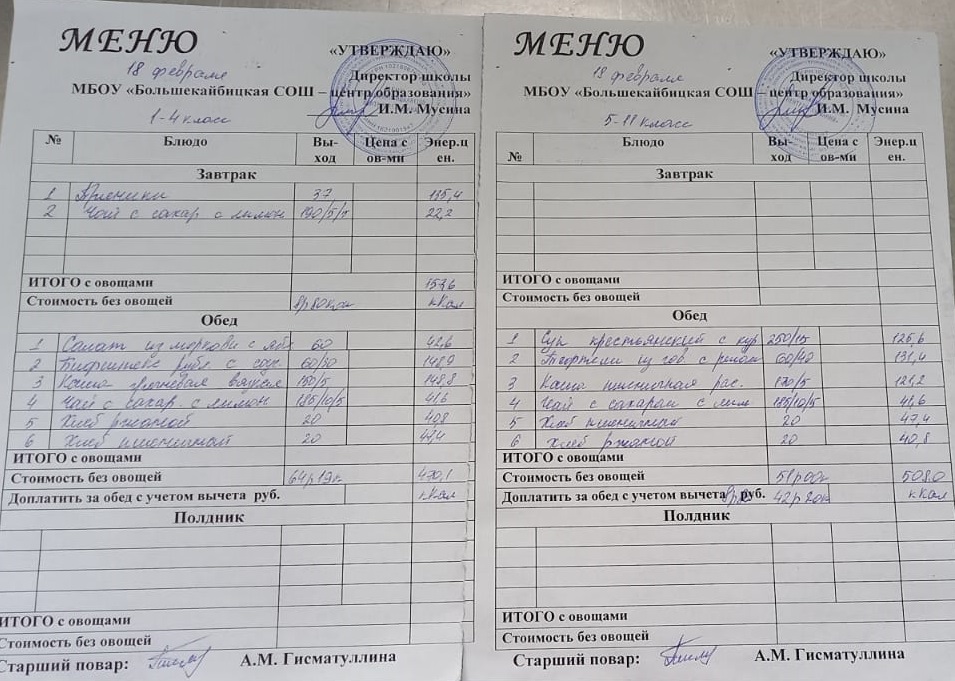 МЕНЮ
«УТВЕРЖДАЮ»
18 февраля
Директор школы
МБОУ «Большекайбицкая СОШ – центр образования»
И.М. Мусина
1-4 класс
№ Блюдо Вы-ход Цена с ов-ми Энер.ц ен.
Завтрак
1 Пряники 37 135,4
2 Чай с сахар с лимон 190/5/ 22,2
ИТОГО с овощами 157,6
Стоимость без овощей 8р80коп кКал
Обед
1 Салат из моркови с ябл 60 42,6
2 Биточки рыб с соус. 60/30 148,9
3 Каша гречневая вязкая 150/5 148,8
4 Чай с сахар. с лимон 185/10/5 41,6
5 Хлеб ржаной 20 40,8
6 Хлеб пшеничный 20 47,4
ИТОГО с овощами
Стоимость без овощей 64р19к 470,1
Доплатить за обед с учетом вычета руб. кКал
Полдник
ИТОГО с овощами
Стоимость без овощей
Старший повар: А.М. Гисматуллина
МЕНЮ
«УТВЕРЖДАЮ»
18 февраля
Директор школы
МБОУ «Большекайбицкая СОШ – центр образования»
И.М. Мусина
5-11 класс
№ Блюдо Вы-ход Цена с ов-ми Энер.ц ен.
Завтрак
ИТОГО с овощами
Стоимость без овощей
Обед
1 Суп крестьянский с кур 250/15 125,6
2 Тефтели из гов. с рисом 60/40 131,4
3 Каша пшеничная рас. 170/5 121,2
4 Чай с сахаром с лим 185/10/5 41,6
5 Хлеб пшеничный 20 47,4
6 Хлеб ржаной 20 40,8
ИТОГО с овощами
Стоимость без овощей 51р00к 508,0
Доплатить за обед с учетом вычета руб. 42р20к кКал
Полдник
ИТОГО с овощами
Стоимость без овощей
Старший повар: А.М. Гисматуллина